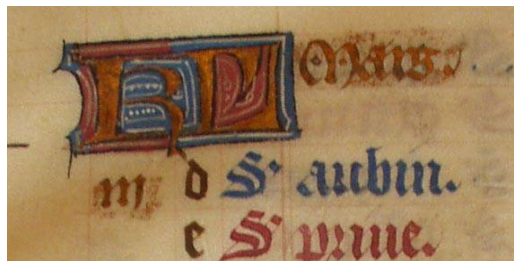 KL Mars.
iij d S' aubin.
e S' priue.